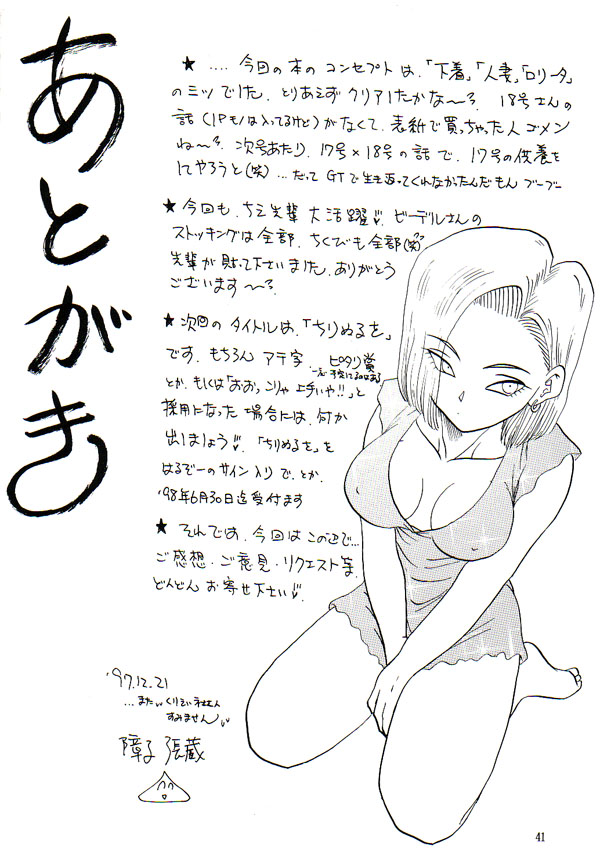 あとがき
★ .... 今回の本の コンセプト は、「下着」「人妻」「ロリータ」
の三ツ でした。とりあえず クリアしたかな〜?。 18号さんの
話(1Pモノは入ってるけど)がなくて、表紙で買っちゃった人ゴメン
ね〜?。次号あたり、17号×18号の話で、17号の供養を
してやろうと(笑) ... だって GTで生き返ってくれなかったんだもん ブーブー
★ 今回も、ちえ先輩 大活躍。ビーデルさんの
ストッキングは全部、ちくびも全部(笑)
先輩が貼って下さいました。ありがとう
ございます〜?。
★ 次回の タイトルは、「ちりぬるを」
です。もちろん アテ字。ピタリ賞
とか、もしくは「おおっこりゃ上手いや!!」と
採用になった 場合には、何か
出しましょう。「ちりぬるを」を
はるぞーのサイン入りで、とか。
'98年6月30日迄受付ます
★ それでは、今回は この辺で...
ご感想・ご意見・リクエスト等、
どんどん お寄せ下さい。
'97.12.21
...また
すみません
障子 張蔵
41